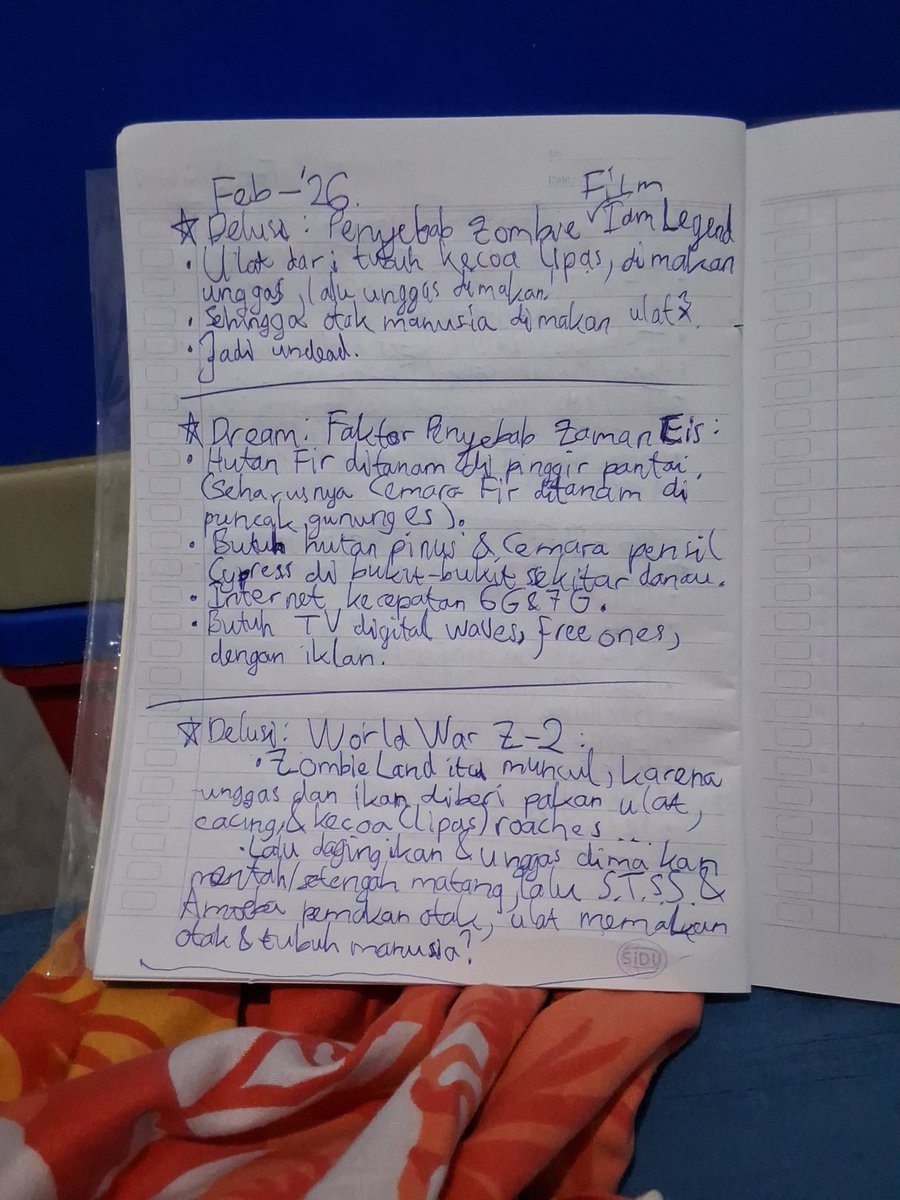 Feb-'26. Film
☆ Delusi: Penyebab Zombie √ I am Legend
• Ulat dari tubuh kecoa lipas, dimakan
unggas, lalu unggas dimakan.
• Sehingga otak manusia dimakan ulat²
• Jadi undead.
☆ Dream: Faktor Penyebab Zaman Eis:
• Hutan Fir ditanam di pinggir pantai.
(Seharusnya Cemara Fir ditanam di
puncak gunung es).
• Butuh hutan pinus & Cemara pensil
Cypress di bukit-bukit sekitar danau.
• Internet kecepatan 6G & 7G.
• Butuh TV digital waves, free ones,
dengan iklan.
☆ Delusi: World War Z-2:
• Zombie Land itu muncul, karena
unggas dan ikan diberi pakan ulat,
cacing, & kecoa (lipas) roaches....
• Lalu daging ikan & unggas dimakan
mentah/setengah matang, lalu S.T.S.S. &
Amoeba pemakan otak, ulat memakan
otak & tubuh manusia?
SiDU